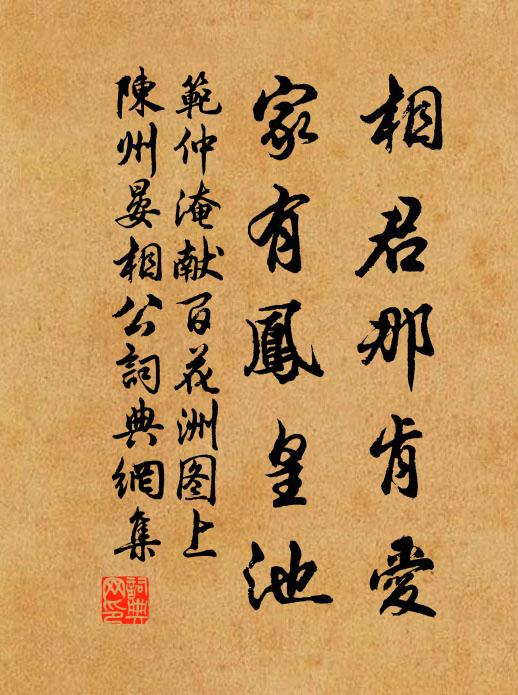 相君那肯愛
家有鳳皇池
範仲淹献百花洲图上
陳州晏相公詞典網集
詞典
网印